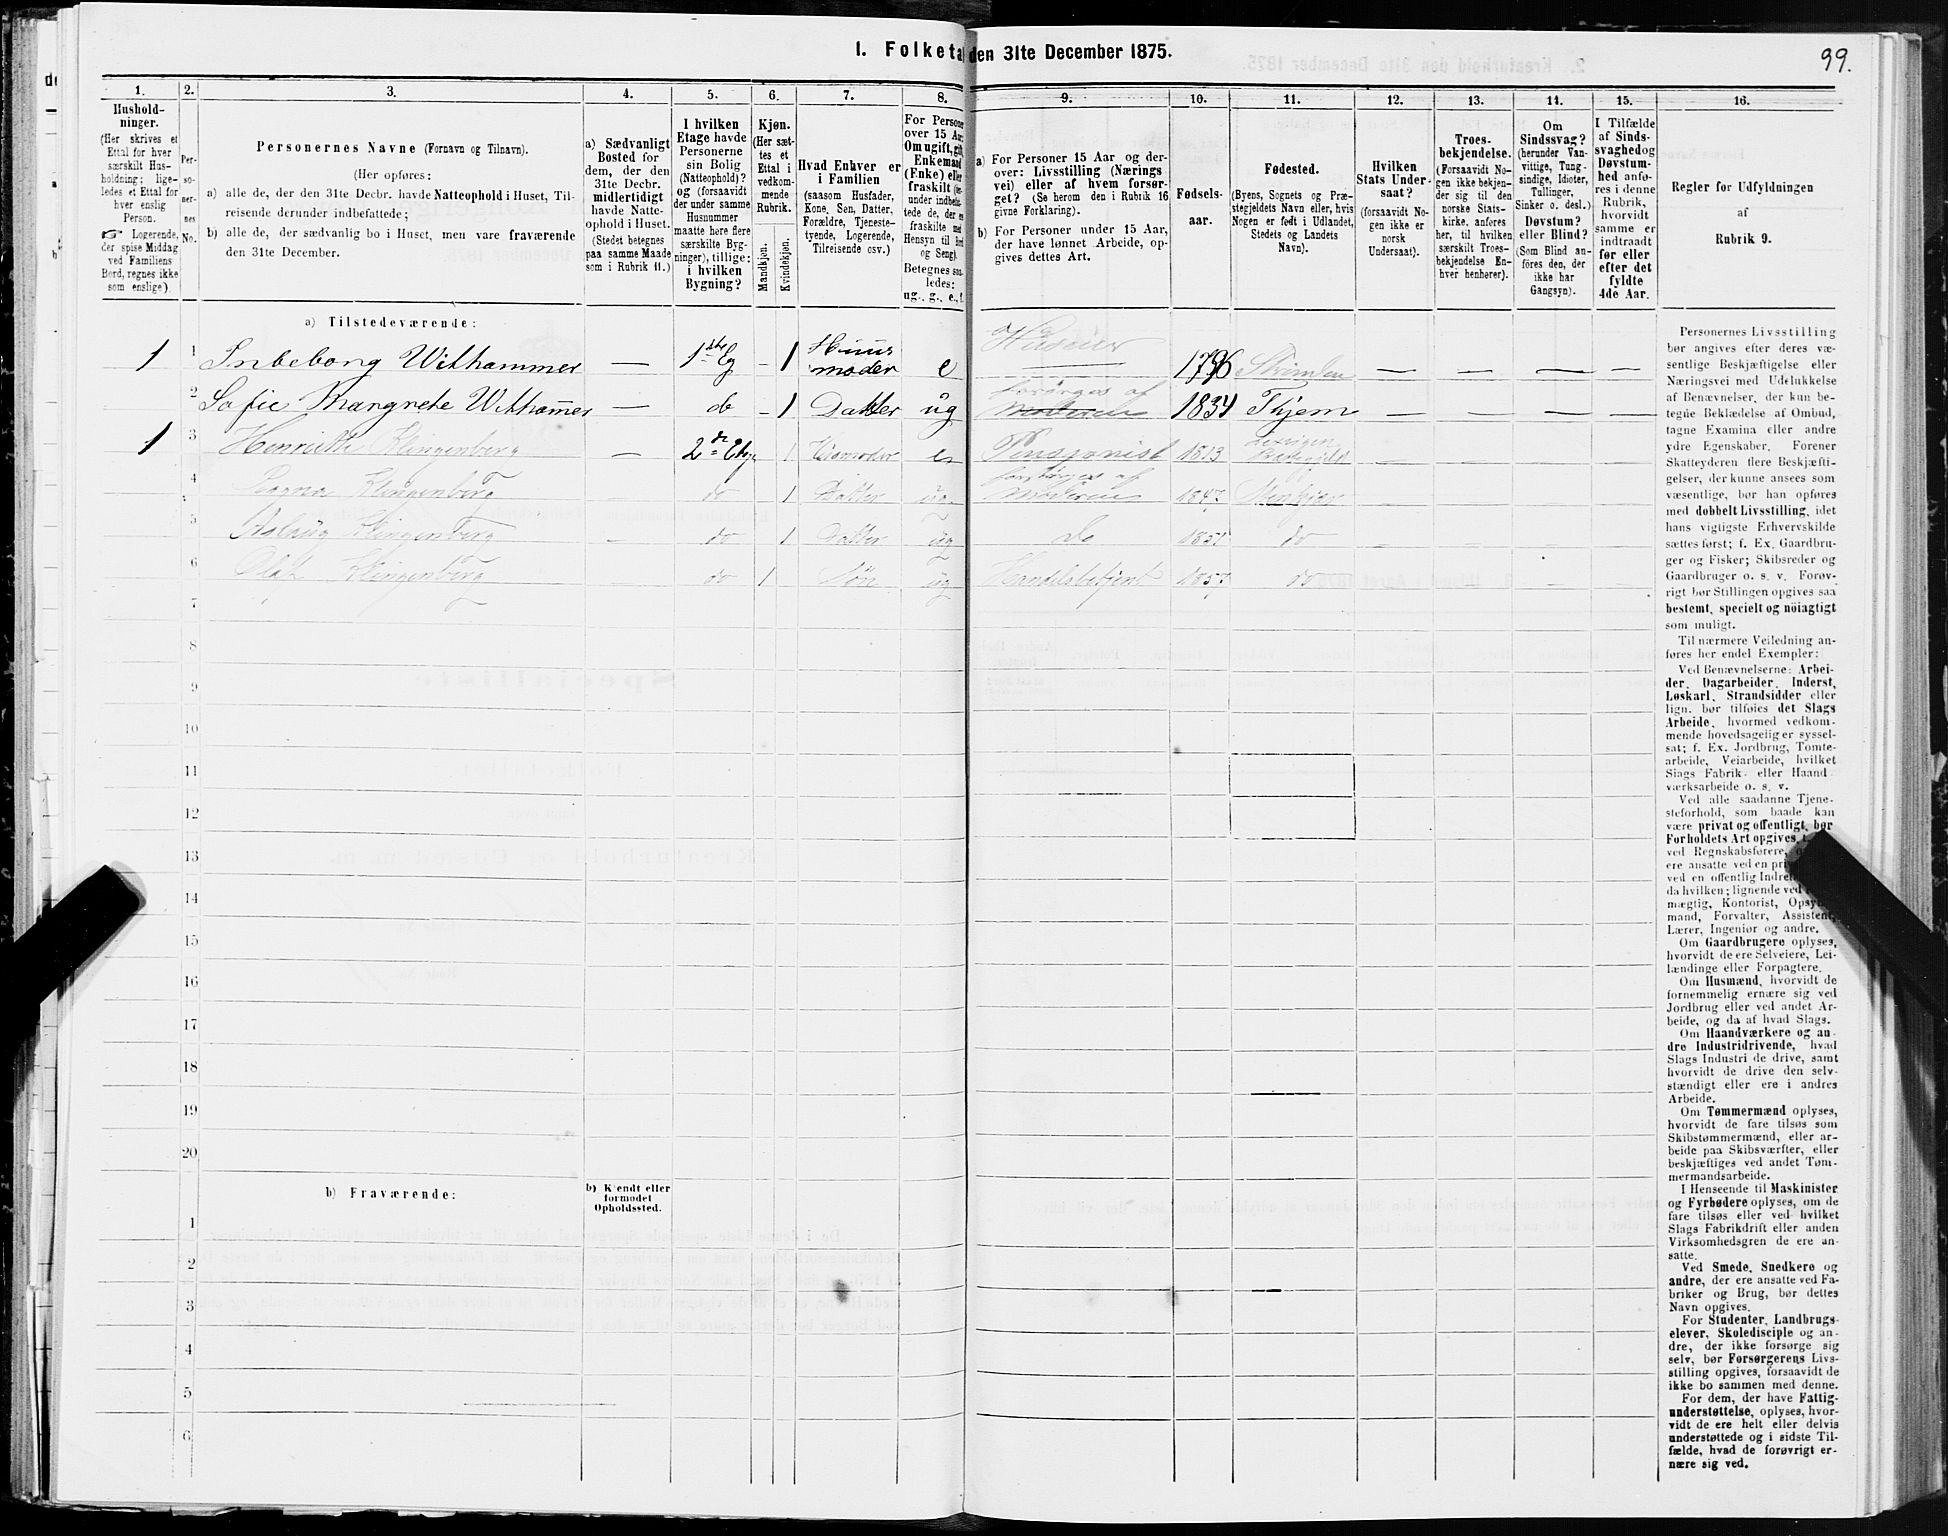 1. Folketa den 31te December 1875.
99.
1.
Hushold-
ninger.
(Her skrives et
Ettal for hver
særskilt Hus-
holdning; lige-
ledes et Ettal for
hver enslig
Person.
☞ Logerende,
der spise Middag
ved Familiens
Bord, regnes ikke
som enslige).
2.
Per-
so-
ner-
nes
No.
3.
Personernes Navne (Fornavn og Tilnavn).
(Her opføres:
a) alle de, der den 31te Decbr. havde Natteophold i Huset, Til-
reisende derunder indbefattede;
b) alle de, der sædvanlig bo i Huset, men vare fraværende
den 31te December.
4.
a) Sædvanligt
Bosted for
dem, der den
31te Decbr.
midlertidigt
havde Natte-
ophold i Huset.
(Stedet betegnes
paa samme Maade
som i Rubrik 11.)
5.
I hvilken
Etage havde
Personerne
sin Bolig
(Natteophold)?
og (forsaavidt
der under samme
Husnummer
maatte høre flere
særskilte Byg-
ninger), tillige:
i hvilken
Bygning?
6.
Kjøn.
(Her sæt-
tes et
Ettal i
vedkom-
mende
Rubrik.
Mandkjøn.
Kvindekjøn.
7.
Hvad Enhver er
i Familien
(saasom Husfader,
Kone, Søn, Datter,
Forældre, Tjeneste-
tyende, Logerende,
Tilreisende osv.)
8.
For Persone
over 15 Aa
Om ugift, gift
Enkemand
(Enke) eller
fraskilt
Betegnes saa-
ledes:
ug., g., e., f.
9.
a) For Personer 15 Aar og der-
over: Livsstilling (Nærings
vei) eller af hvem forsør-
get? (Se herom den i Rubrik 16
givne Forklaring).
b) For Personer under 15 Aar,
der have lønnet Arbeide, op-
gives dettes Art.
10.
Fødsels-
aar.
11.
Fødested.
(Byens, Sognets og Præ-
stegjeldets Navn eller, hvis
Nogen er født i Udlandet,
Stedets og Landets
Navn).
12.
Hvilken
Stats Under-
saat?
(forsaavidt No-
gen ikke er
norsk
Undersaat).
13.
Troes-
bekjendelse.
(Forsaavidt No-
gen ikke bekjen-
der sig til den
norske Stats-
kirke, anføres
her, til hvilken
særskilt Troes-
bekjendelse En-
hver henhører).
14.
Om
Sindssvag?
(herunder Van-
vittige, Tung-
sindige, Idioter,
Tullinger,
Sinker o. desl.)
Døvstum?
eller Blind?
(Som Blind an-
føres den, der
ikke har
Gangsyn).
15.
I Tilfælde
af Sinds-
svaghed og
Døvstum-
hed anfø-
res i denne
Rubrik,
hvorvidt
samme er
indtraadt
før eller
efter det
fyldte
4de Aar.
16.
Regler for Udfyldningen
af
Rubrik 9.
a) Tilstedeværende:
1 1 Inbeborg Withammer — 1ste Eg – 1 Huusmoder e Huseier 1796 Strinden — — — —
2 Sofie Margrete Withammer — do – 1 Datter ug forsørges af Moderen 1834 Hjem — — — —
1 3 Henriette Klingenberg — 2den Etage 1 Husmoder e Pensionist 1813
4 Ragna Klingenberg – do 1 Datter ug forsørges af Moderen 1847 Stenkjær
5 Aslaug Klingenberg – do 1 Datter ug do 1851 do
6 Olaf Klingenberg do 1 Søn ug Handelsbetjent 1857 do
7
8
9
10
11
12
13
14
15
16
17
18
19
20
b) Fraværende:
b) Kjendt eller
formodet
Opholdssted.
1
2
3
4
5
6
Personernes Livsstilling
bør angives efter deres væ-
sentlige Beskjæftigelse eller
Næringsvei med Udelukkelse
af Benævnelser, der kun be-
tegne Beklædelse af Ombud,
tagne Examina eller andre
ydre Egenskaber. Forener
Skatteyderen flere Beskjæfti-
gelser, der kunne ansees som
væsentlige, bør han opføres
med dobbelt Livsstilling, idet
hans vigtigste Erhvervskilde
sættes først; f. Ex. Gaardbru-
ger og Fisker; Skibsreder og
Gaardbruger o. s. v. Forøv-
rigt bør Stillingen opgives saa
bestemt, specielt og nöiagtigt
som muligt.
Til nærmere Veiledning an-
føres her endel Exempler:
Ved Benævnelserne: Arbei-
der, Dagarbeider, Inderst,
Løskarl, Strandsidder eller
lign. bør tilføies det Slags
Arbeide, hvormed vedkom-
mende hovedsagelig er syssel-
sat; f. Ex. Jordbrug, Tomte-
arbeide, Veiarbeide, hvilket
Slags Fabrik- eller Haand-
værksarbeide o. s. v.
Ved alle saadanne Tjene-
steforhold, som baade kan
være privat og offentligt, bør
Forholdets Art opgives,
ved Regnskabsførere,
ere ansatte ved en pri
ved en offentlig Indre
da hvilken; lignende ved
mægtig, Kontorist, Opsy
mand, Forvalter, Assistent,
Lærer, Ingeniør og andre.
Om Gaardbrugere oplyses,
hvorvidt de ere Selveiere, Lei-
lændinge eller Forpagtere.
Om Husmænd, hvorvidt de
fornemmelig ernære sig ved
Jordbrug eller ved andet Ar-
beide, og da af hvad Slags.
Om Haandværkere og an-
dre Industridrivende, hvad
Slags Industri de drive, samt
hvorvidt de drive den selv-
stændigt eller ere i andres
Arbeide.
Om Tømmermænd oplyses,
hvorvidt de fare tilsøs som
Skibstømmermænd, eller ar-
beide paa Skibsværfter, eller
beskjæftiges ved andet Tøm-
mermandsarbeide.
I Henseende til Maskinister
og Fyrbødere oplyses, om de
fare tilsøs eller ved hvilket
Slags Fabrikdrift eller anden
Virksomhedsgren de ere an-
satte.
Ved Smede, Snedkere og
andre, der ere ansatte ved Fa-
briker og Brug, bør dettes
Navn opgives.
For Studenter, Landbrugs-
elever, Skoledisciple og an-
dre, der ikke forsørge sig
selv, bør Forsørgerens Livs-
stilling opgives, forsaavidt de
ikke bo sammen med denne.
For dem, der have Fattig-
understøttelse, oplyses, hvor-
vidt de ere helt eller delvis
understøttede og i sidste Til-
fælde, hvad de forøvrigt er-
nære sig ved.